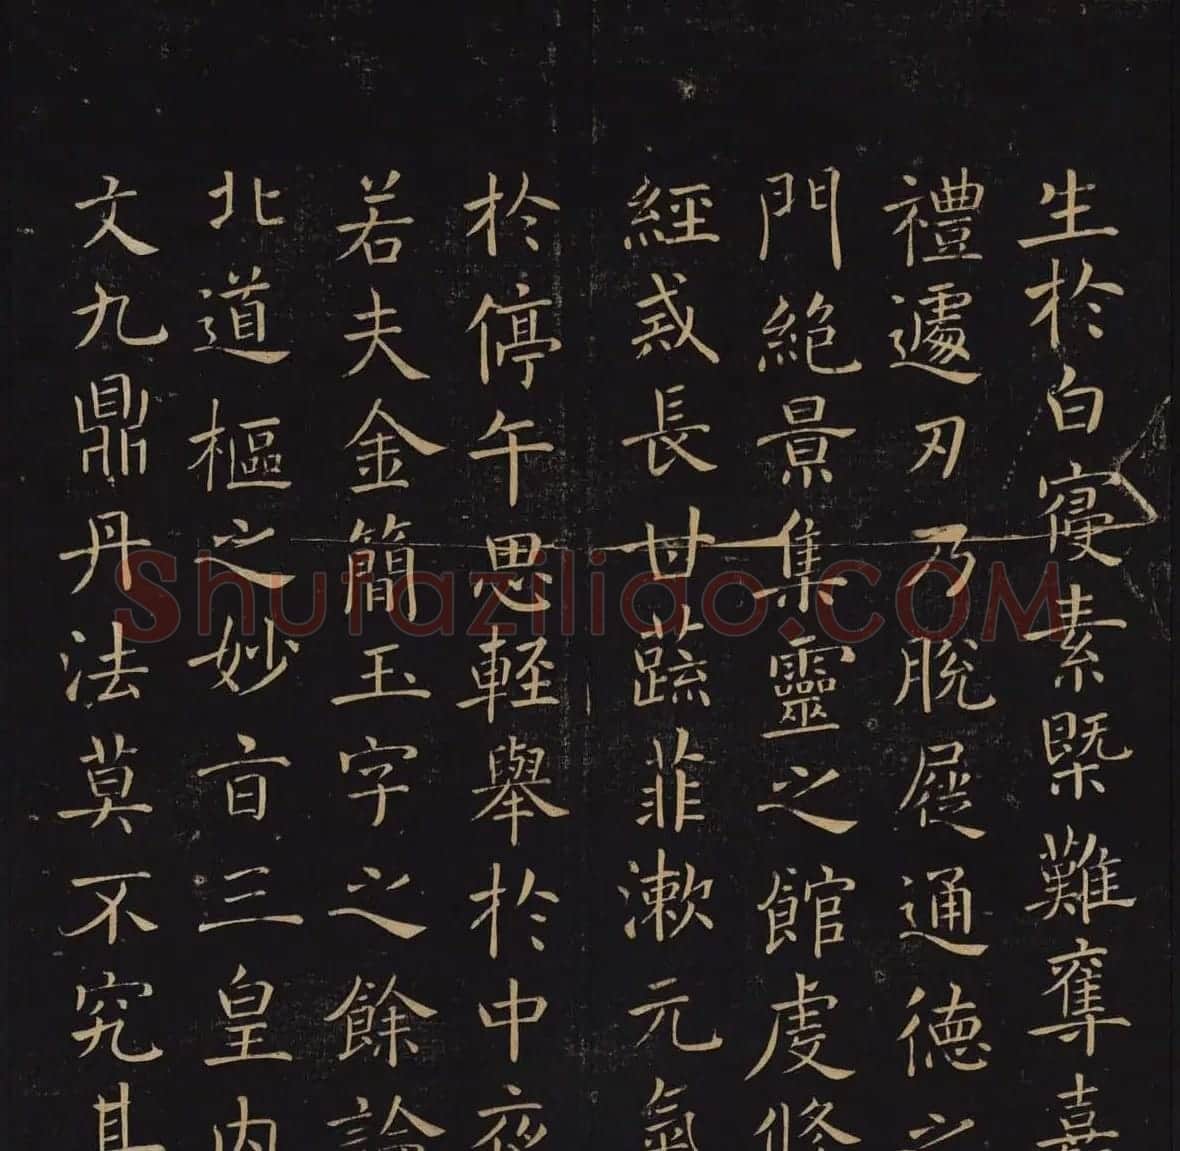 生於白寢素槩難奪嘉
禮遽刃乃脫屣通德之
門絕景集靈之館虔修
經戒長甘蔬菲漱元氣
於停午思輕舉於中夜
若夫金簡玉字之餘論
北道樞之妙旨三皇內
文九鼎丹法莫不究其
Shufaziliao.COM